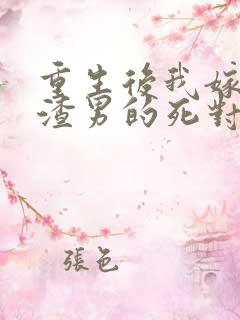 重生後我嫁
渣男的死對
張邑